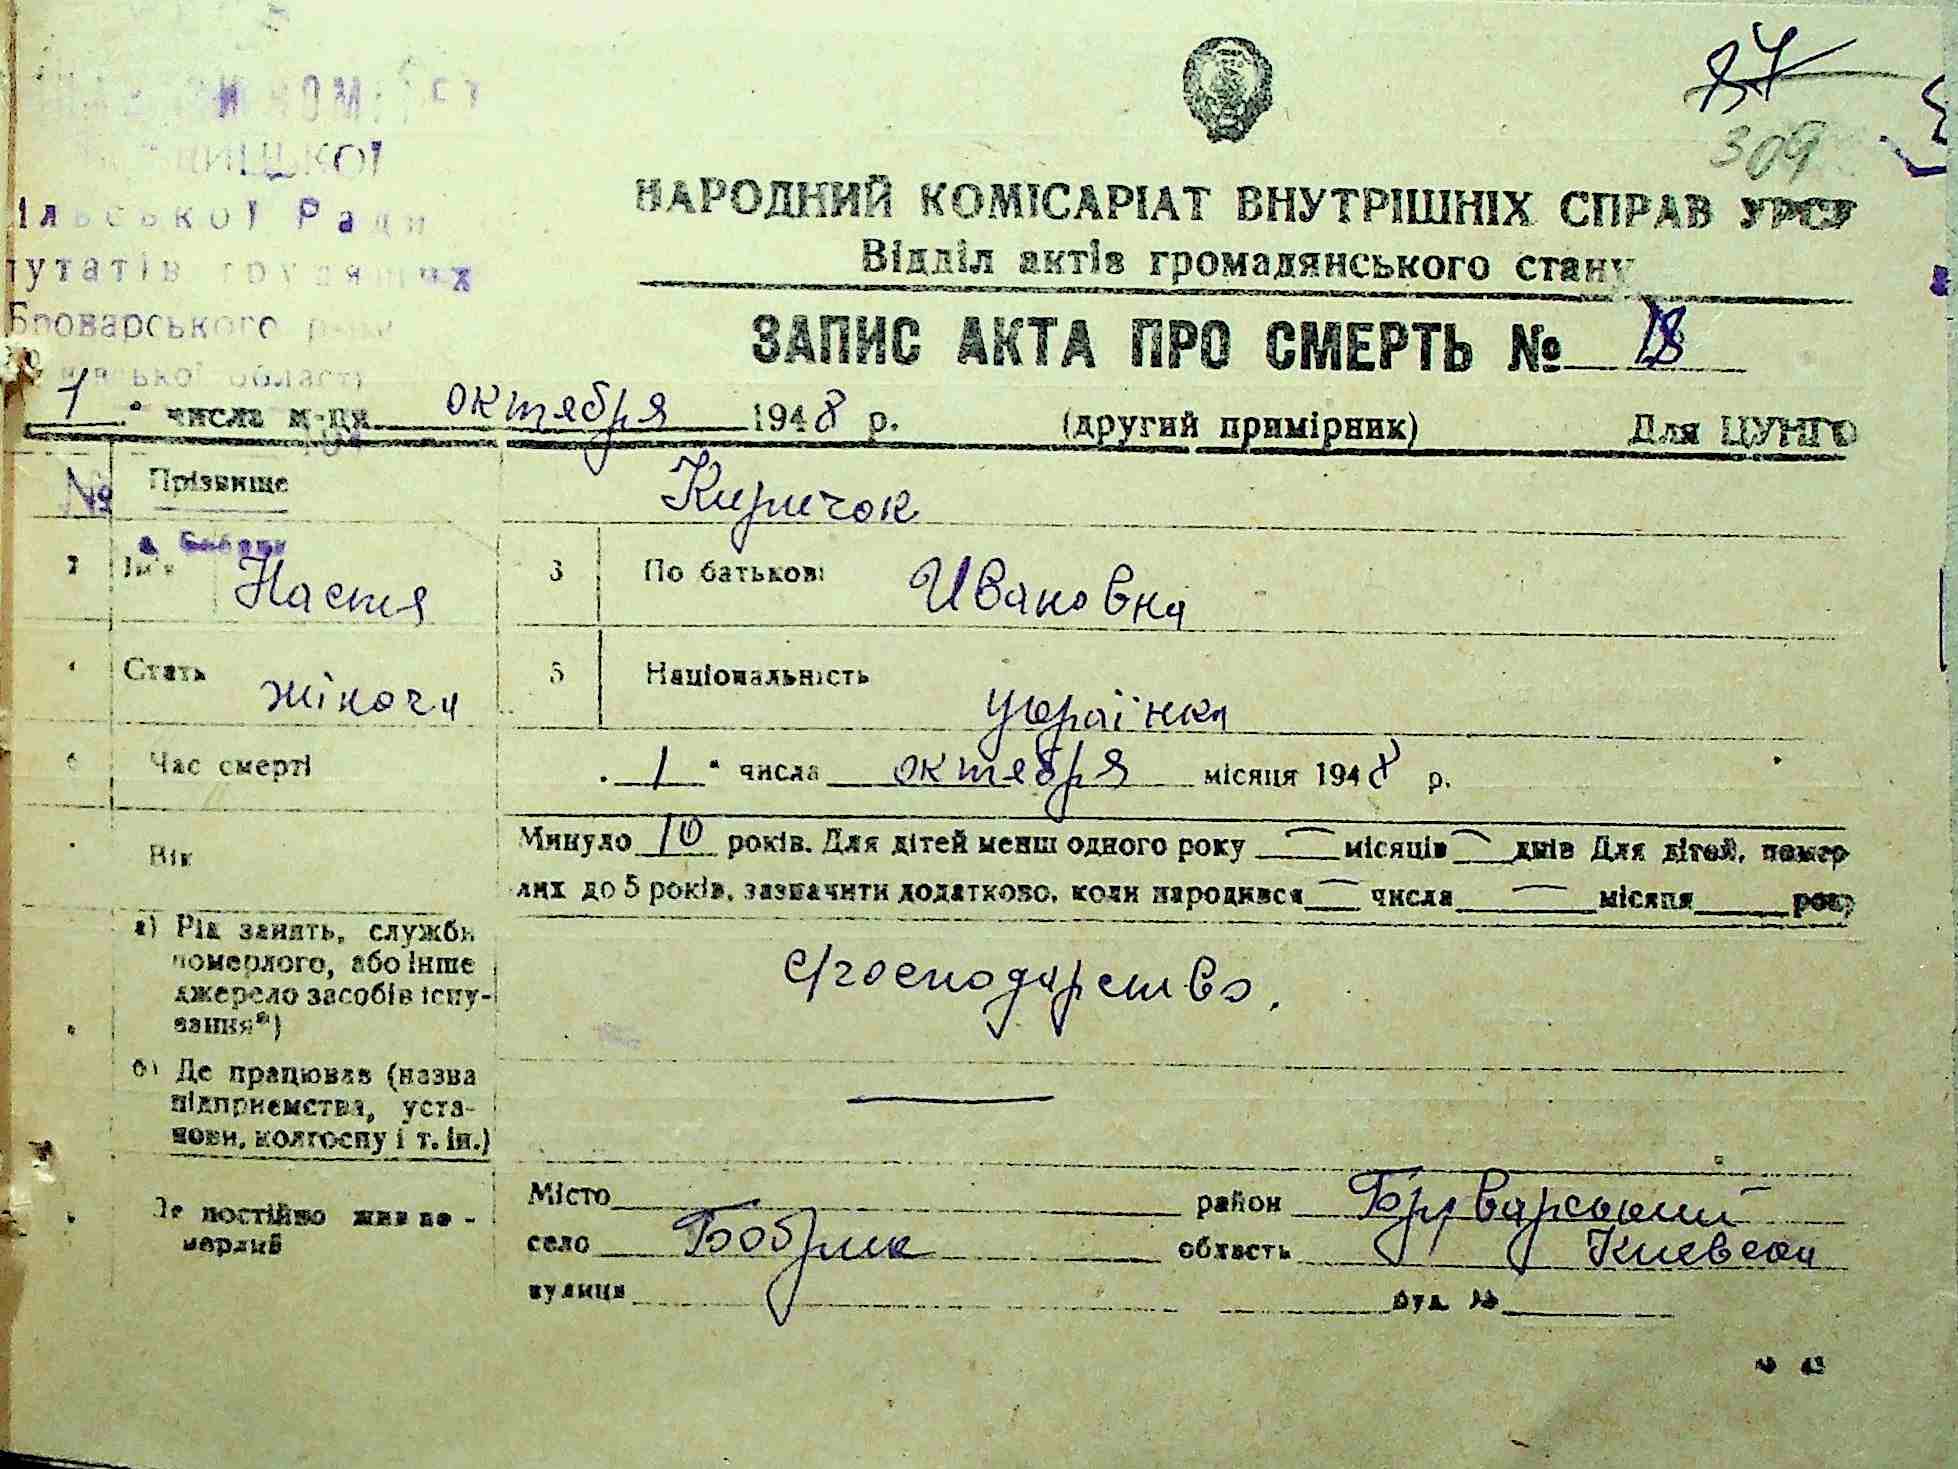 37
309
КОМІТЕТ
ільської Ради
путатів трудящих
Броварського району
ївської області
НАРОДНИЙ КОМІСАРІАТ ВНУТРІШНІХ СПРАВ УРСР
Відділ актів громадянського стану
ЗАПИС АКТА ПРО СМЕРТЬ № 18
1 " числа м-ця октября 1948 р. (другий примірник) Для ЦУНГО
№ Прізвище Киричок
с. Бобрик
2 Ім'я Настя 3 По батькові Ивановна
4 Стать жіноча 5 Національність українка
6 Час смерті „1" числа октября місяця 1948 р.
Вік Минуло 10 років. Для дітей менш одного року — місяців — днів Для дітей, помер-
лих до 5 років, зазначити додатково, коли народився — числа — місяця року
а) Рід занять, служби
померлого, або інше
джерело засобів існу-
вання*)
с/господарство.
б) Де працював (назва
підприємства, уста-
нови, колгоспу і т. ін.)
—
Де постійно жив по-
мерлий
Місто район Броварський
село Бобрик область Киевская
вулиця буд. №